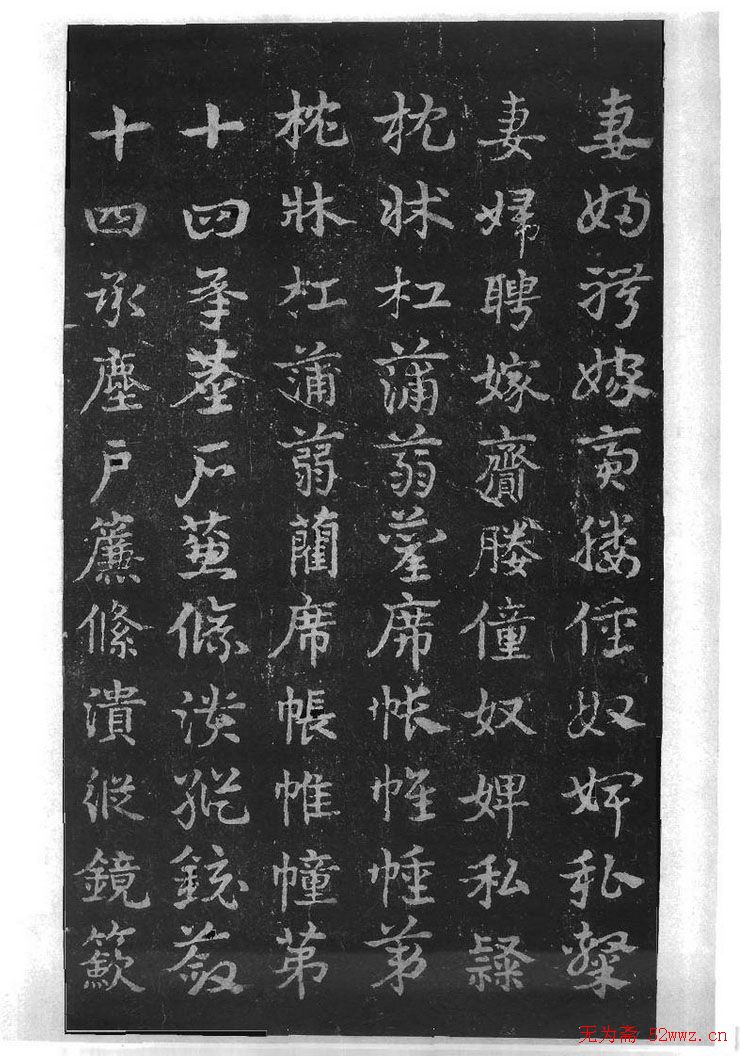 妻婦聘嫁齎媵僮奴婢私隸
妻婦聘嫁齎媵僮奴婢私隸
枕牀杠蒲蒻藺席帳帷幢弟
枕牀杠蒲蒻藺席帳帷幢弟
十四承塵戶簾絛潰縱鏡
十四承塵戶簾絛潰縱鏡
无为斋 52wwz.cn